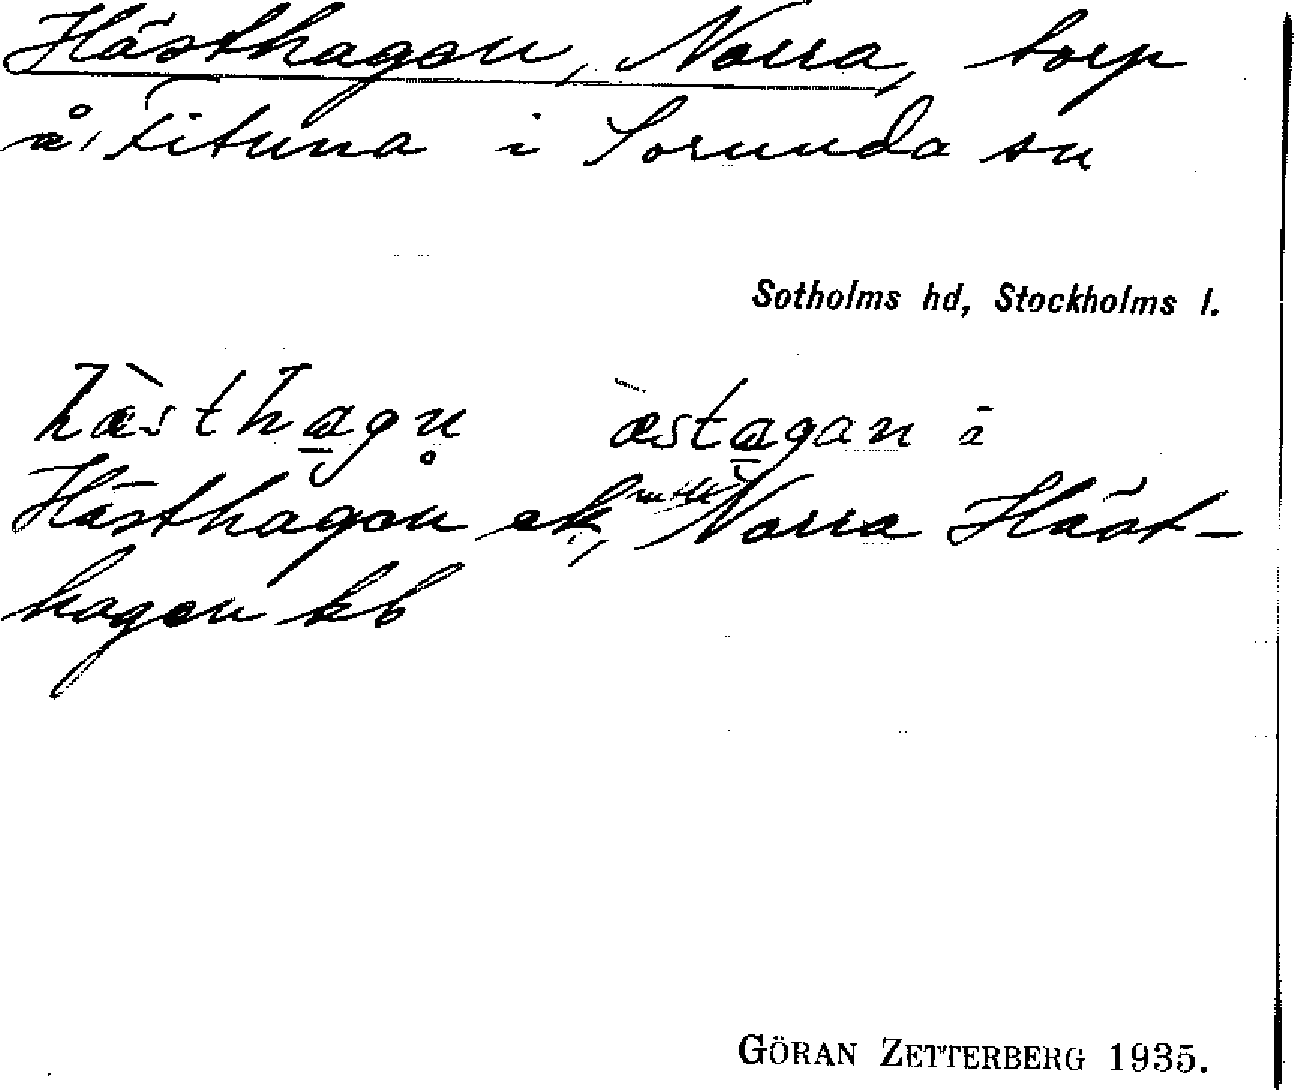 Hästhagen, Norra, torp
å Fituna i Sorunda sn
Sotholms hd, Stockholms l.
hæ̀sthagn̥ æ̀stagan i
Hästhagen ek, Norra Häst-
hagen kb
GÖRAN ZETTERBERG 1935.